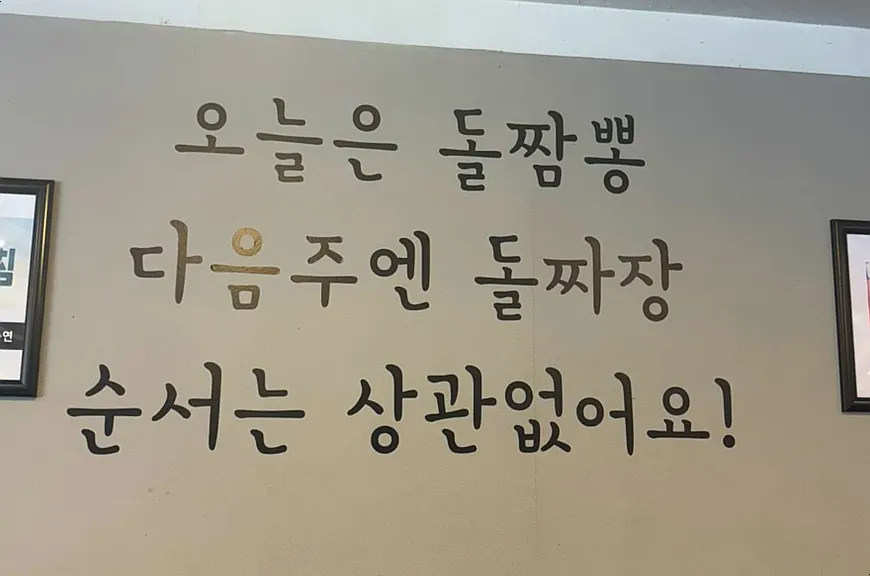 오늘은 돌짬뽕
다음주엔 돌짜장
순서는 상관없어요!